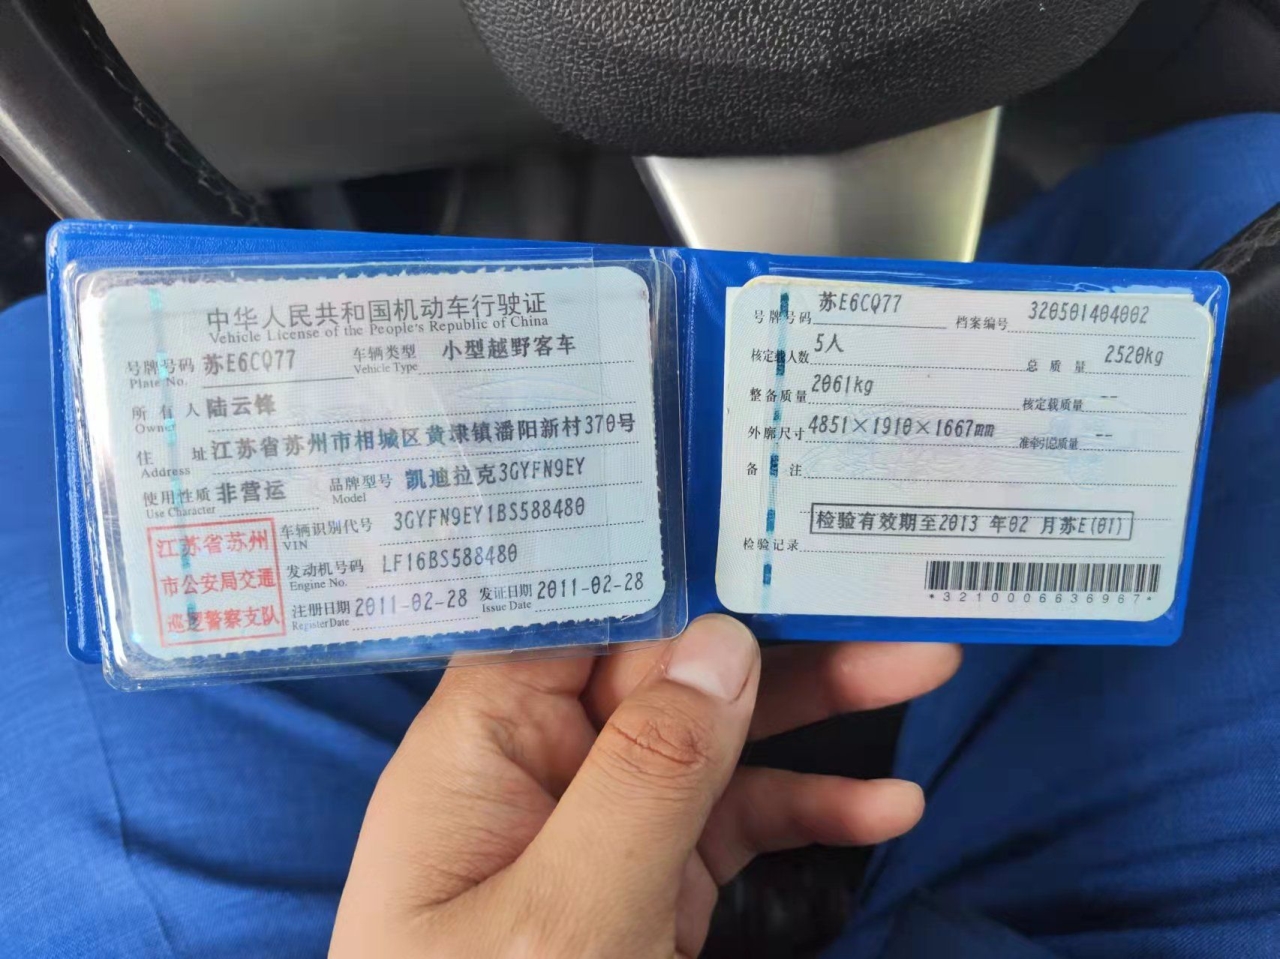 中华人民共和国机动车行驶证
Vehicle License of the People's Republic of China
号牌号码 苏E6CQ77 车辆类型 小型越野客车
Plate No. Vehicle Type
所有人 陆云锋
Owner
住址 江苏省苏州市相城区黄埭镇潘阳新村370号
Address
使用性质 非营运 品牌型号 凯迪拉克3GYFN9EY
Use Character Model
江苏省苏州
市公安局交通
巡逻警察支队
车辆识别代号 3GYFN9EY1BS588480
VIN
发动机号码 LF16BS588480
Engine No.
注册日期 2011-02-28 发证日期 2011-02-28
Register Date Issue Date
号牌号码 苏E6CQ77 档案编号 320501404002
核定载人数 5人 总质量 2520kg
整备质量 2061kg 核定载质量 --
外廓尺寸 4851×1910×1667mm 准牵引总质量 --
备注
检验有效期至2013 年02 月苏E(01)
检验记录
*3210006636967*